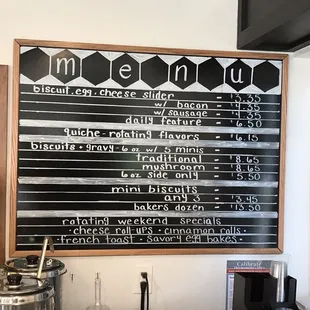 menu
biscuit, egg, cheese slider - 3.35
w/ bacon - 4.35
w/ sausage - 4.35
daily feature - 6.50
quiche - rotating flavors - 6.15
biscuits + gravy - 6 oz w/ 5 minis -
traditional - 8.65
mushroom - 8.65
6 oz side only - 5.50
mini biscuits -
any 3 - 3.45
bakers dozen - 13.50
rotating weekend specials
• cheese roll-ups • cinnamon rolls •
french toast • savory egg bakes •